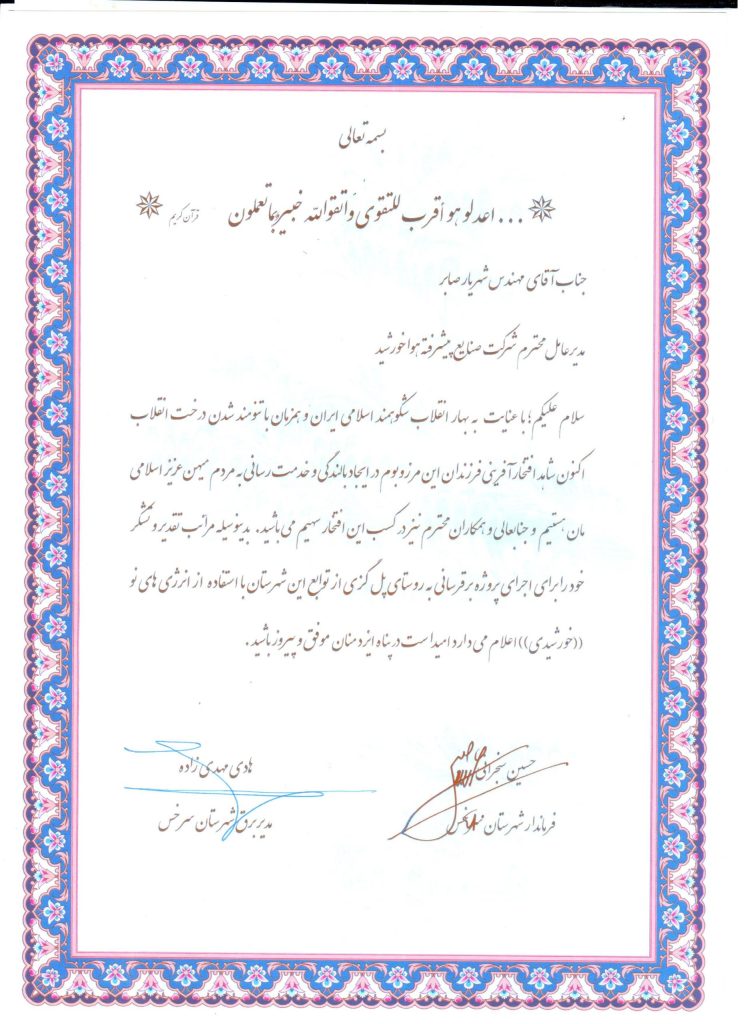 بسمه تعالی
... اعدلو هو أقرب للتقوی وَاتقوالله خبیر بما تعملون قرآن کریم
جناب آقای مهندس شهریار صابر
مدیرعامل محترم شرکت صنایع پیشرفته هوا خورشید
سلام علیکم؛ با عنایت به بهار انقلاب شکوهمند اسلامی ایران و همزمان با تنومند شدن درخت انقلاب
اکنون شاهد افتخار آفرینی فرزندان این مرز و بوم در ایجاد بالندگی و خدمت رسانی به مردم میهن عزیز اسلامی
مان هستیم و جنابعالی و همکاران محترم نیز در کسب این افتخار سهیم می باشید. بدینوسیله مراتب تقدیر و تشکر
خود را برای اجرای پروژه برقرسانی به روستای پل گزی از توابع این شهرستان با استفاده از انرژی های نو
((خورشیدی)) اعلام می دارد امید است در پناه ایزد منان موفق و پیروز باشید.
حسین سنجرانی
فرماندار شهرستان سرخس
هادی مهدی زاده
مدیر برق شهرستان سرخس